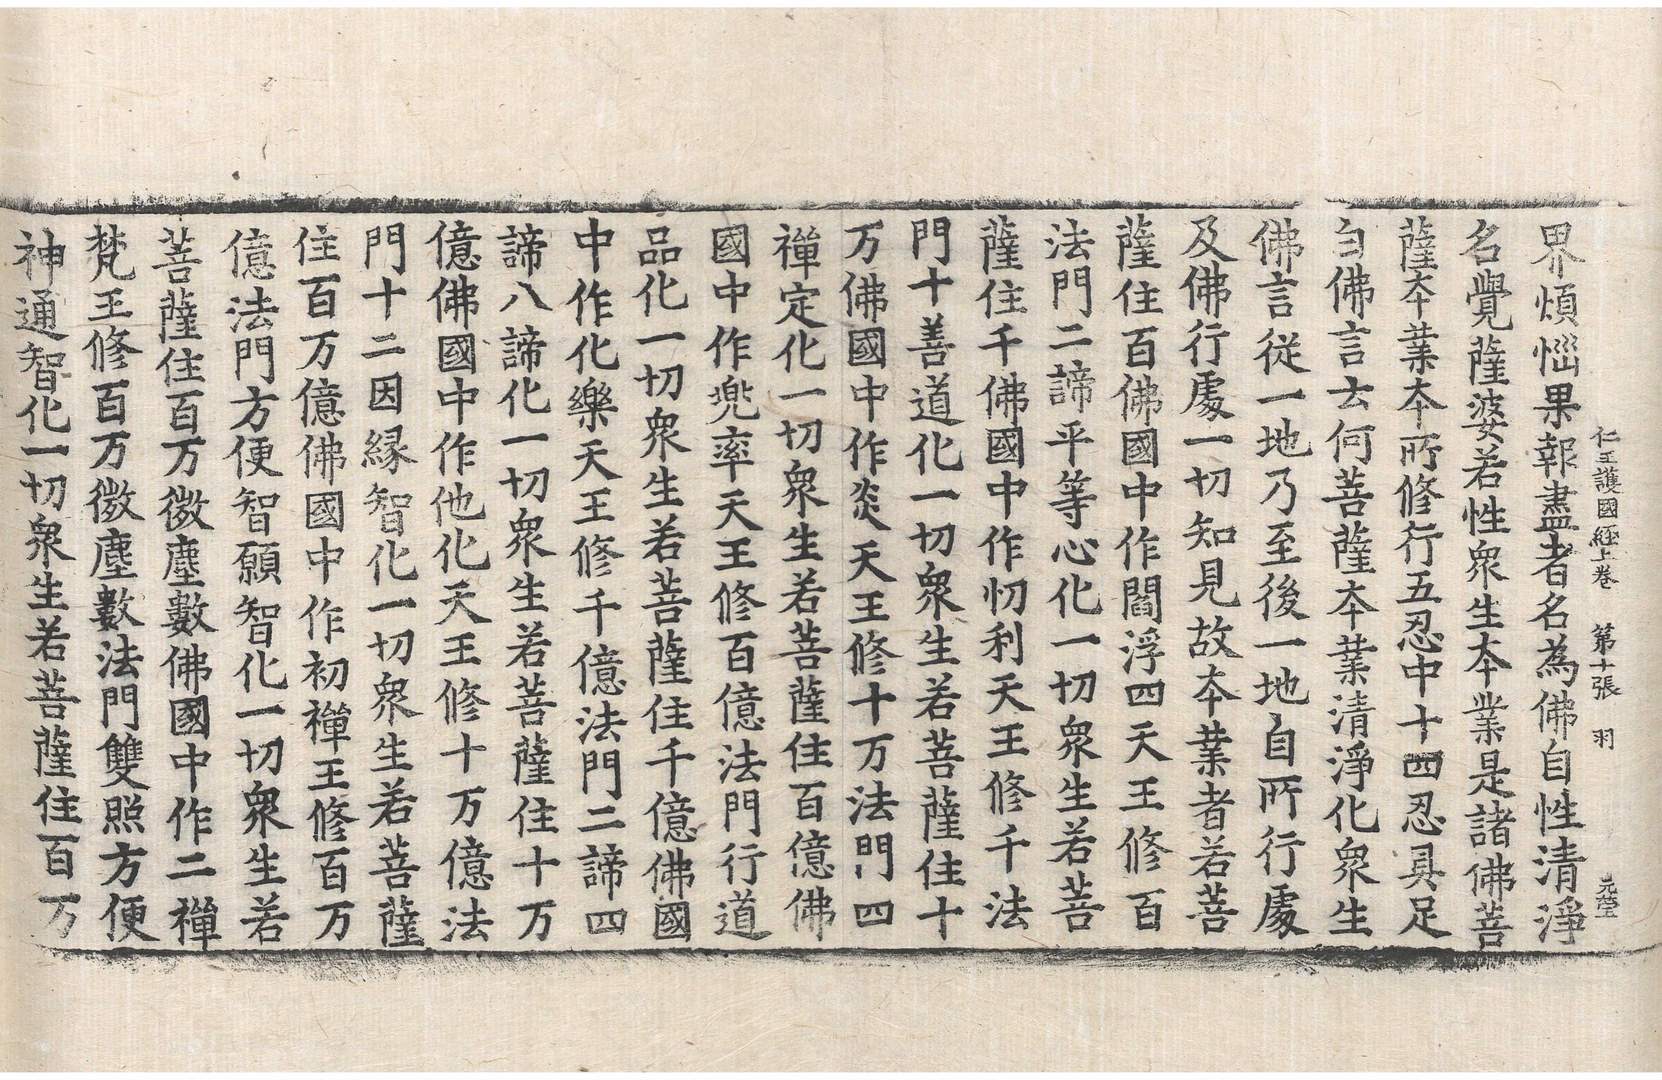 仁王護國經上卷 第十張 羽 元瑩
界煩惱果報盡者名為佛自性清淨
名覺薩婆若性衆生夲業是諸佛菩
薩夲業夲所修行五忍中十四忍具足
白佛言云何菩薩夲業清淨化衆生
佛言從一地乃至後一地自所行處
及佛行處一切知見故夲業者若菩
薩住百佛國中作閻浮四天王修百
法門二諦平等心化一切衆生若菩
薩住千佛國中作忉利天王修千法
門十善道化一切衆生若菩薩住十
万佛國中作炎天王修十万法門四
禪定化一切衆生若菩薩住百億佛
國中作兜率天王修百億法門行道
品化一切衆生若菩薩住千億佛國
中作化樂天王修千億法門二諦四
諦八諦化一切衆生若菩薩住十万
億佛國中作他化天王修十万億法
門十二因緣智化一切衆生若菩薩
住百万億佛國中作初禪王修百万
億法門方便智願智化一切衆生若
菩薩住百万微塵數佛國中作二禪
梵王修百万微塵數法門雙照方便
神通智化一切衆生若菩薩住百万